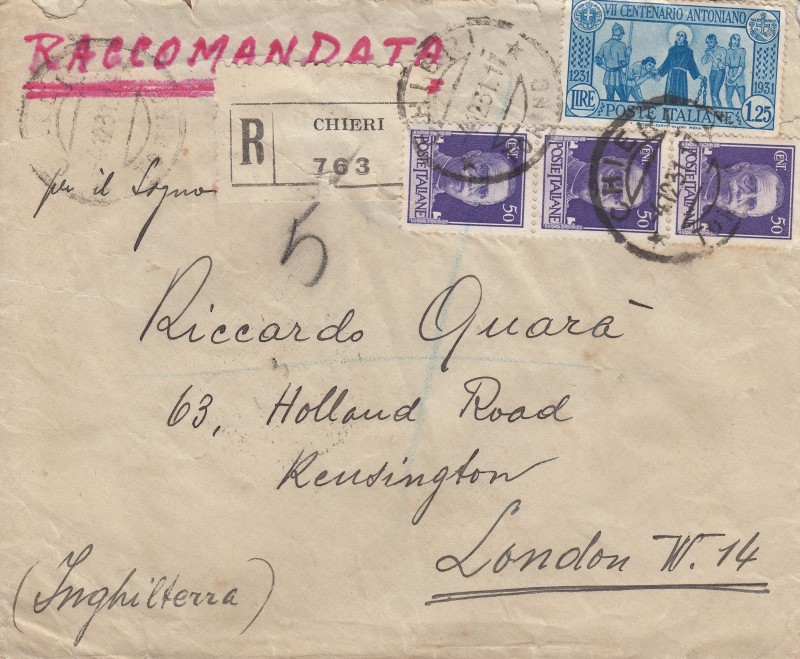 RACCOMANDATA
VII CENTENARIO ANTONIANO
1231 1931
LIRE POSTE ITALIANE 1.25
R CHIERI
763
POSTE ITALIANE CENT. 50
POSTE ITALIANE CENT. 50
POSTE ITALIANE CENT. 50
CHIERI
CHIERI
per il Signor
5
Riccardo Quarà
63, Holland Road
Kensington
London W. 14
(Inghilterra)